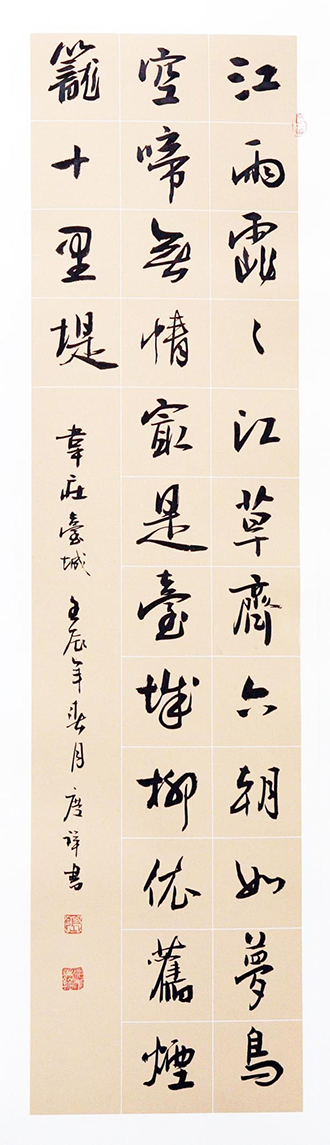 江雨霏〻江草齊六朝如夢鳥
空啼無情最是臺城柳依舊煙
籠十里堤
韋莊臺城 壬辰年春月 唐祥書